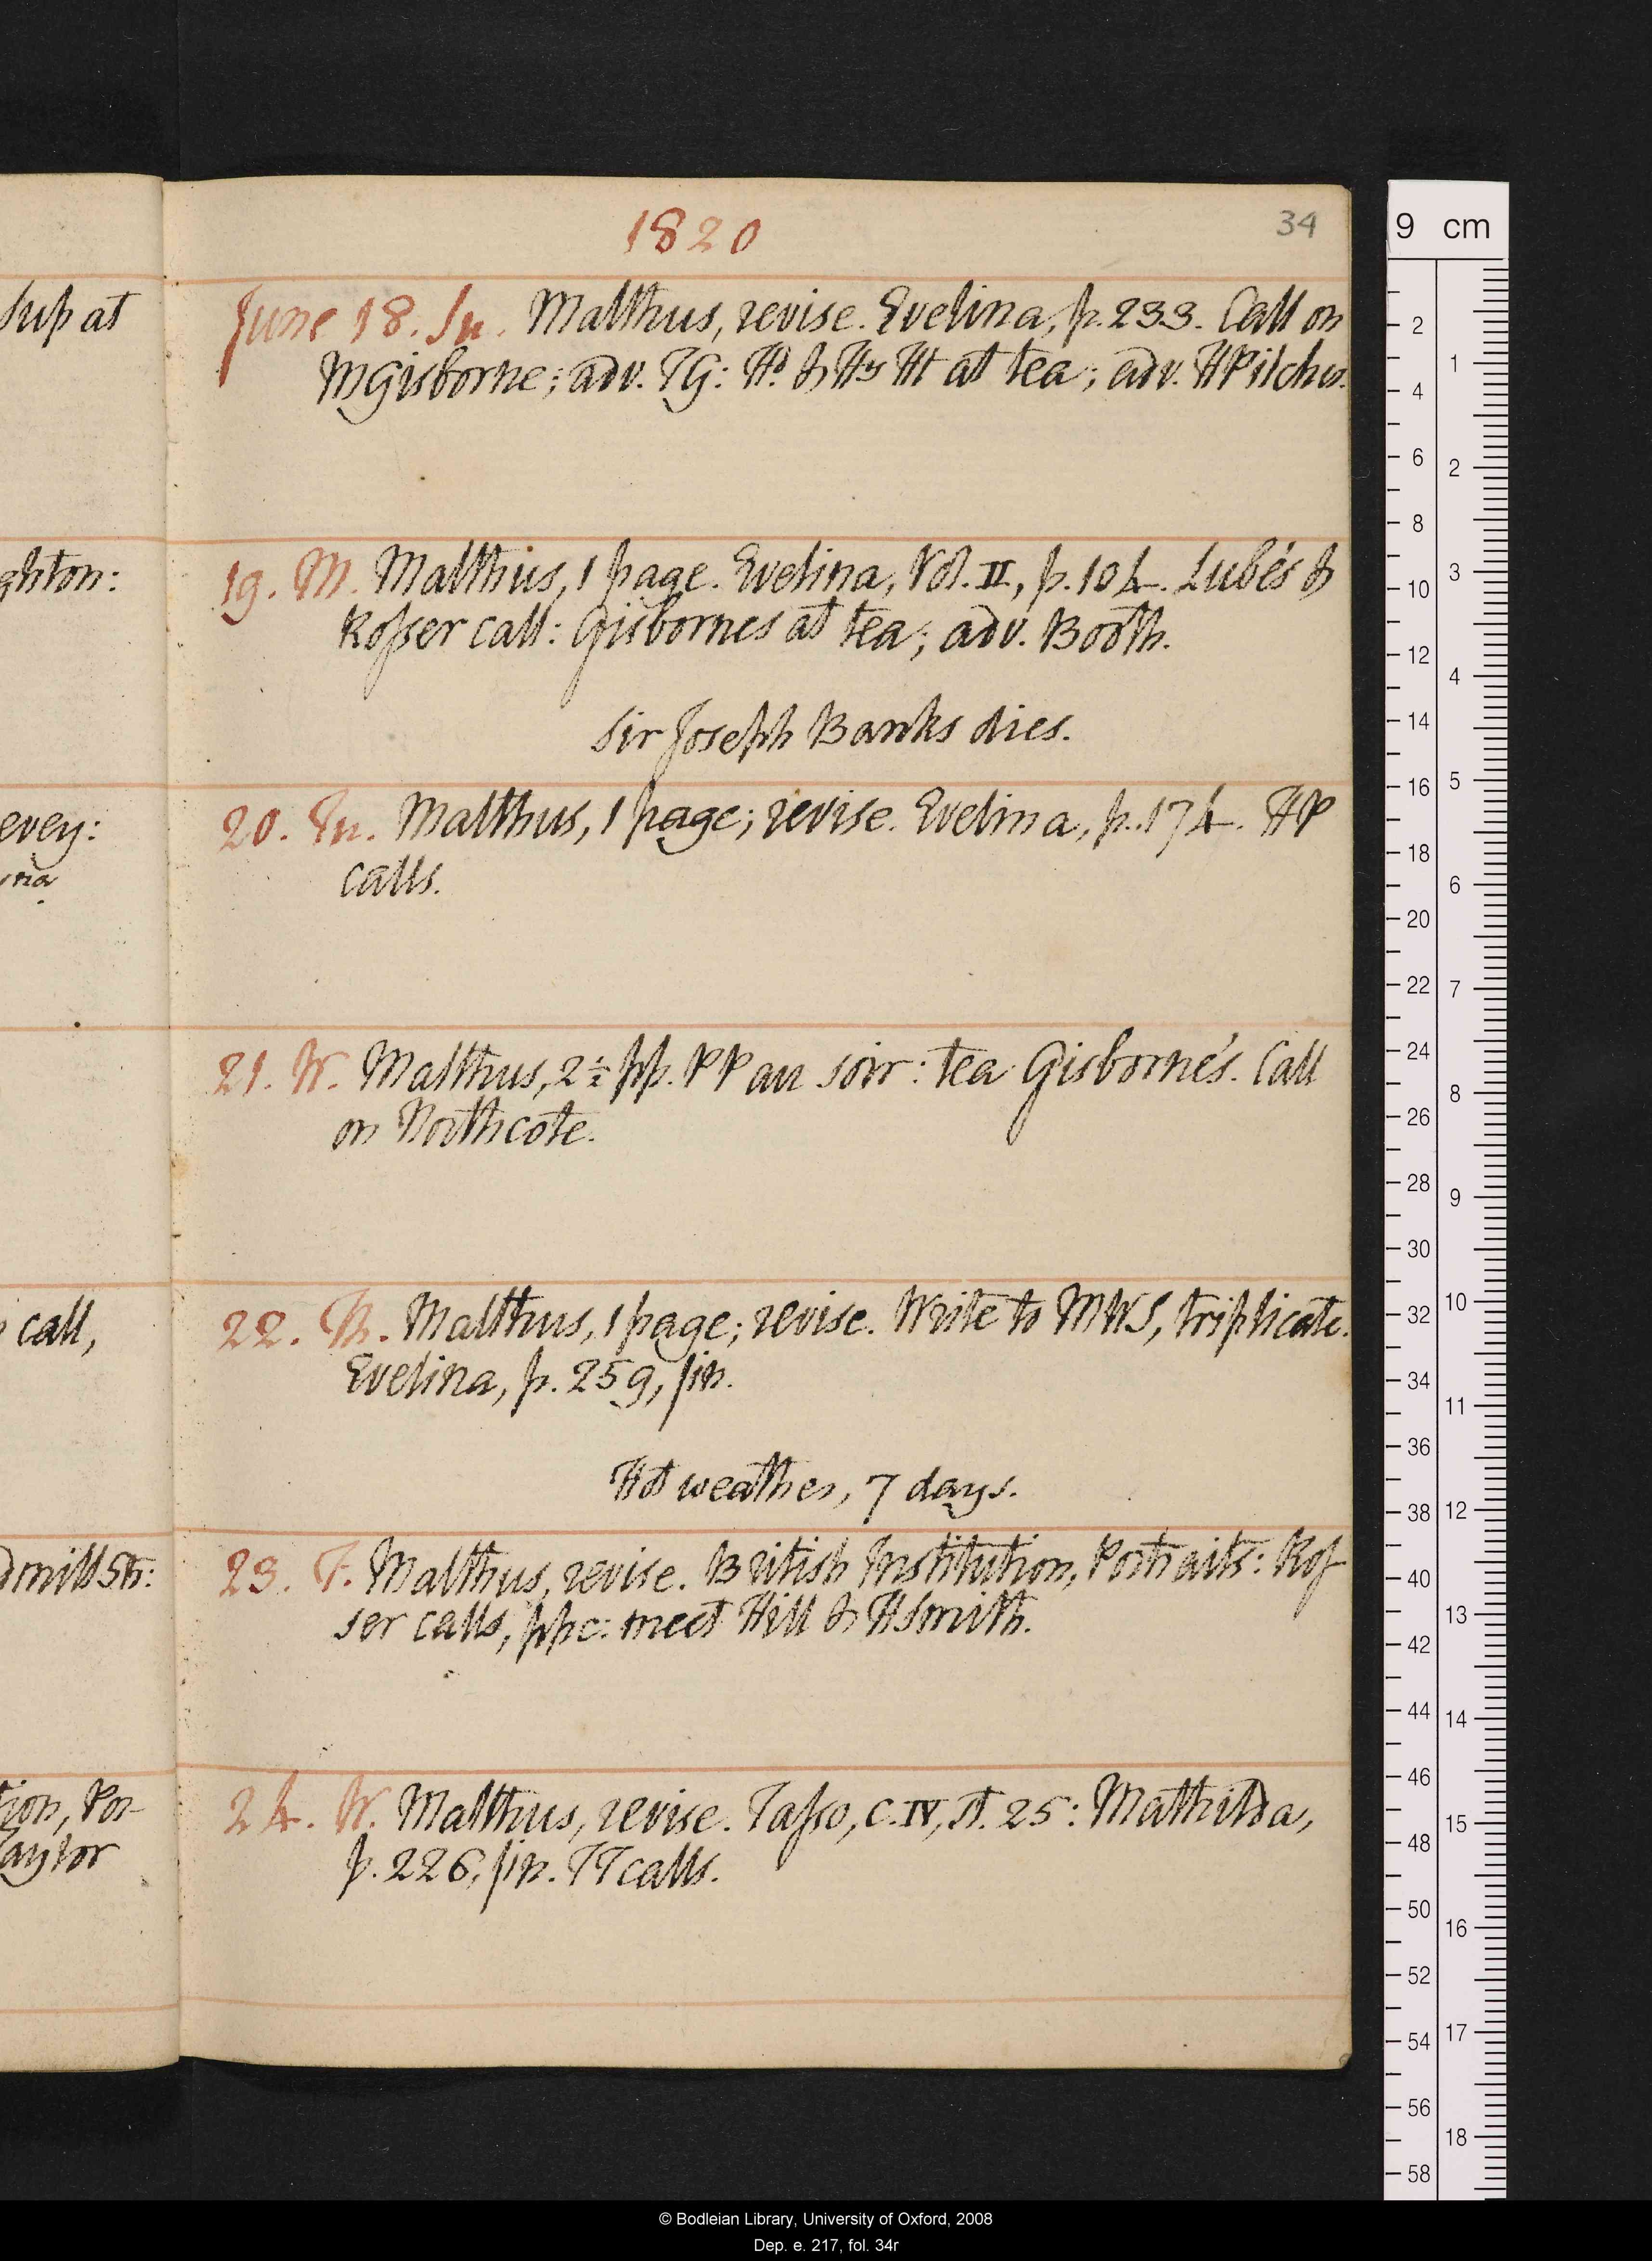 1820
34
June 18. Su. Malthus, revise. Evelina, p. 233. Call on
M Gisborne; adv. JG: Hd & Hy Ht at tea; adv. H Pilcher.
19. M. Malthus, 1 page. Evelina, Vol. II, p. 104. Lubé's &
Rosser call: Gisbornes at tea; adv. Booth.
Sir Joseph Banks dies.
20. Tu. Malthus, 1 page; revise. Evelina, p. 174. HP
calls.
21. W. Malthus, 2½ pp. PP au soir: tea Gisborne's. Call
on Northcote.
22. Th. Malthus, 1 page; revise. Write to MWS, triplicate.
Evelina, p. 259, fin.
Hot weather, 7 days.
23. F. Malthus, revise. British Institution, Portraits: Ros
ser calls, ppc: meet Hill & H Smith.
24. W. Malthus, revise. Tasso, C. IV, st. 25: Mathilda,
p. 226, fin. TT calls.
sup at
ghton:
evey:
call,
dmill St:
tion, Por-
Taylor
9 cm
2
4
6
8
10
12
14
16
18
20
22
24
26
28
30
32
34
36
38
40
42
44
46
48
50
52
54
56
58
1
2
3
4
5
6
7
8
9
10
11
12
13
14
15
16
17
18
© Bodleian Library, University of Oxford, 2008
Dep. e. 217, fol. 34r